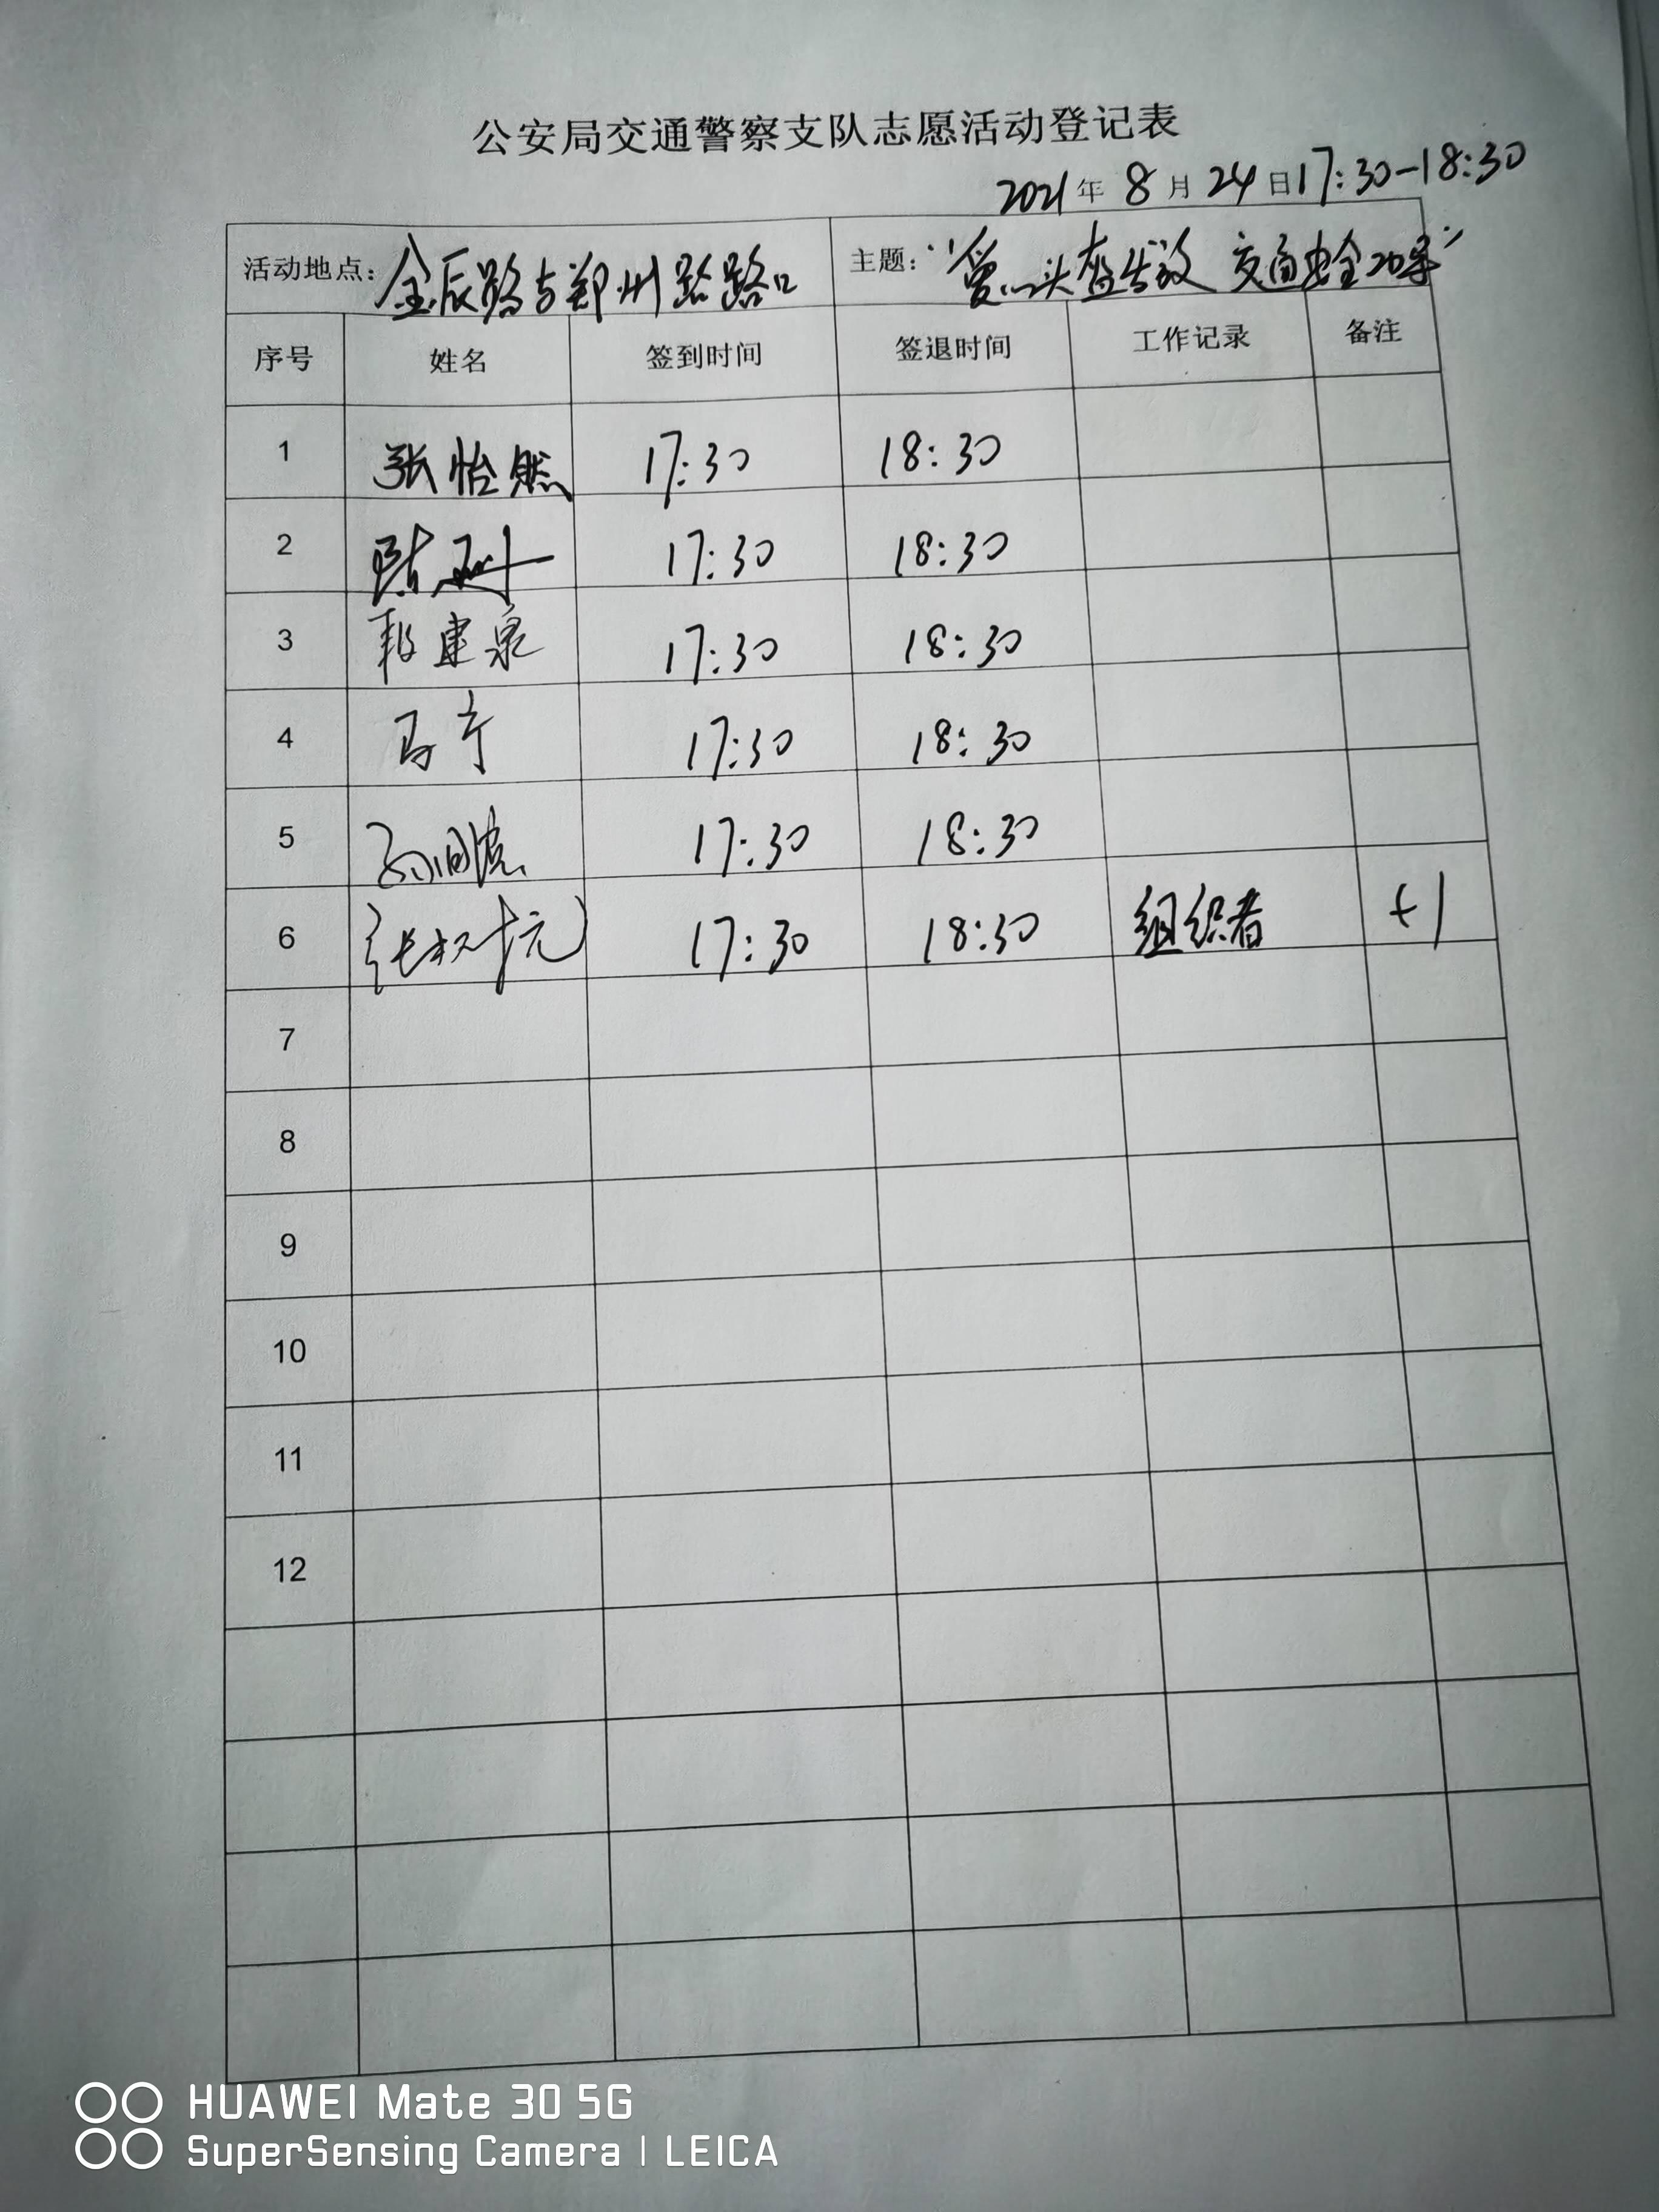 公安局交通警察支队志愿活动登记表
2021年 8月 24日17:30-18:30
活动地点: 金辰路与郑州路路口 主题: 交通安全劝导"
序号 姓名 签到时间 签退时间 工作记录 备注
1 张怡然 17:30 18:30
2 17:30 18:30
3 段建泉 17:30 18:30
4 马宁 17:30 18:30
5 17:30 18:30
6 17:30 18:30 组织者 +1
7
8
9
10
11
12
HUAWEI Mate 30 5G
SuperSensing Camera | LEICA